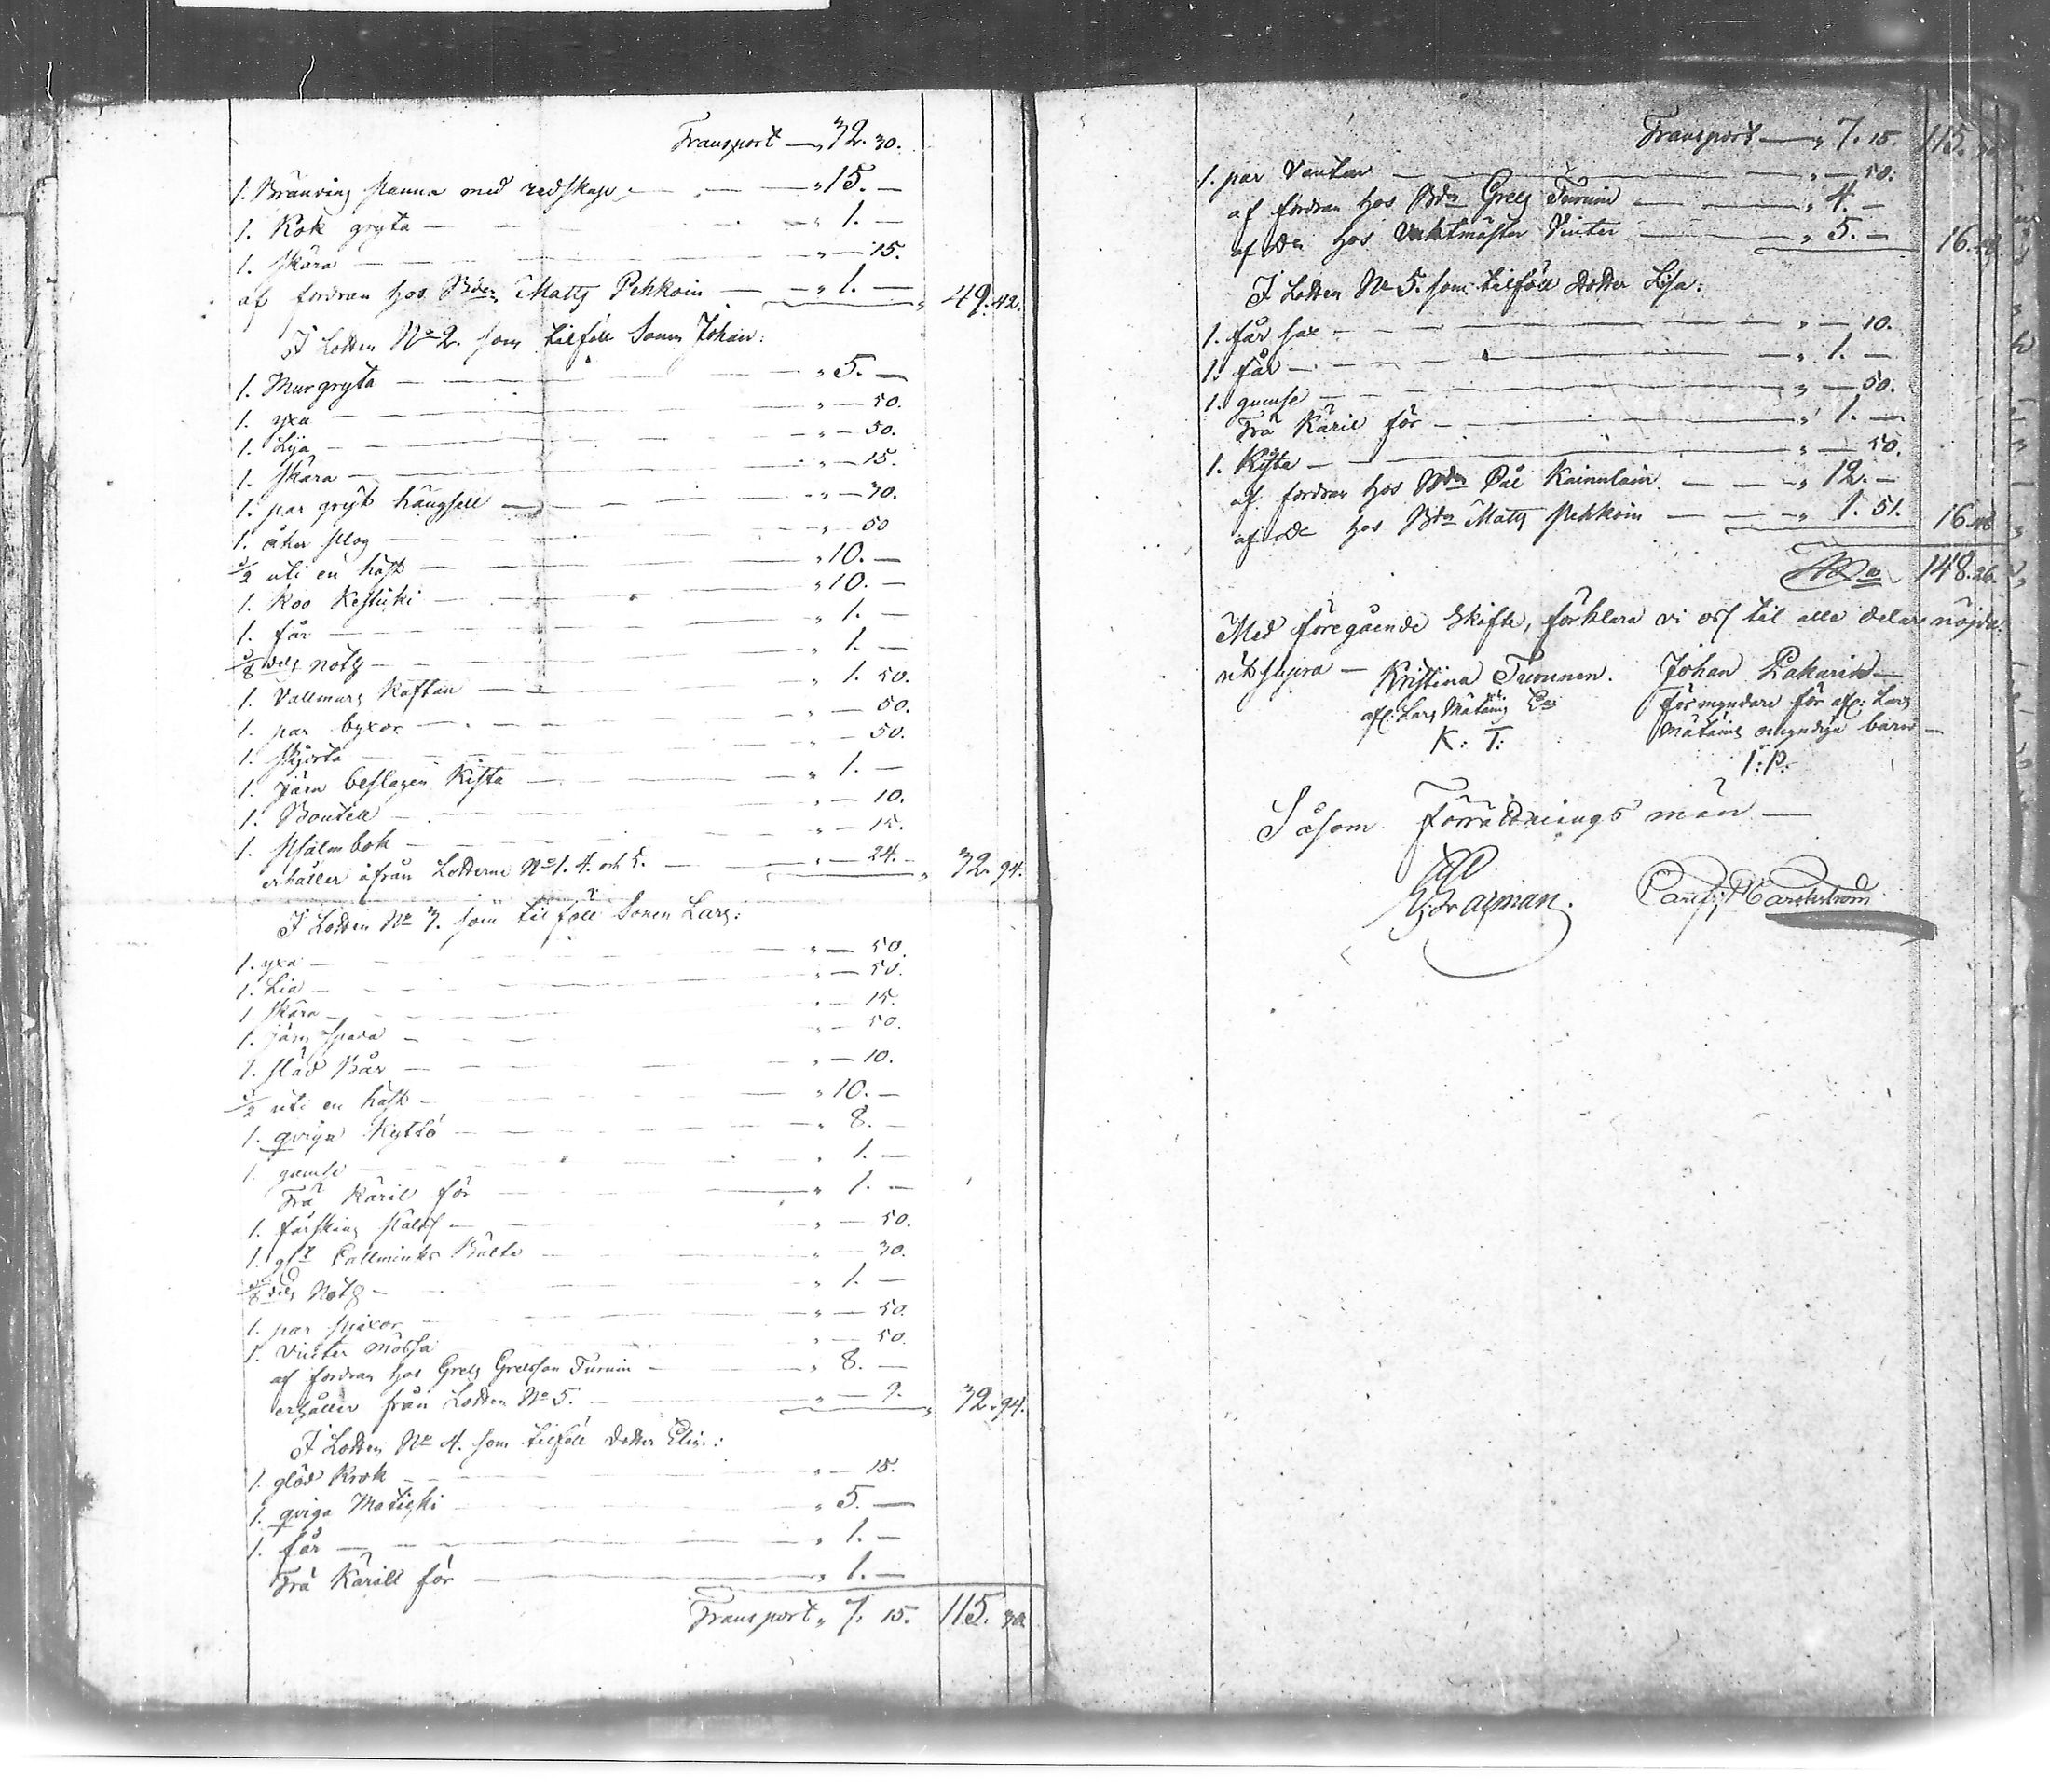 Transport — „ 32. 30.
1. Bränvins panna med redskap — „ 15. —
1. Kok gryta — „ 1. —
1. skära — „ — 15.
af fordran hos Bden Matts Pehkoin — „ 1. — „ 49. 42.
I Lotten No 2. som tilföll Sonen Johan:
1. Murgryta — „ 5. —
1. yxa — „ — 50.
1. Lija — „ — 50.
1. skära — „ — 15.
1. par gryt hängsell — „ — 30.
1. åker plog — „ 50
1/2 uti en häst — „ 10. —
1. Koo Kestiski — „ 10. —
1. får — „ 1. —
1/8 dels notg — „ 1. —
1. Vallmars Kaftan — „ 1. 50.
1. par byxor — „ — 50.
1. skjorta — „ — 50.
1. järn beslagen Kista — „ 1. —
1. Boutell — „ — 10.
1. psalmbok — „ — 15.
erhåller ifrån Lotterne No 1. 4. och 5. — „ — 24. — „ 32. 94.
I Lotten No 3. som tilföll Sonen Lars:
1. yxa — „ — 50.
1. Lia — „ — 50.
1. skära — „ — 15.
1. järn spada — „ — 50.
1. släd Kär — „ — 10.
1/2 uti en häst — „ 10. —
1. qviga Kyttö — „ 8. —
1. gumse — „ 1. —
Trä Käril för — „ 1. —
1. fårskins päls — „ — 50.
1. gl: Callminks Bälte — „ 30.
dels Notg — „ 1. —
1. par pjäxor — „ — 50.
1. Vinter mössa — „ — 50.
af fordran hos Grels Grelsson Turuin — „ 8. —
erhåller från Lotten No 5. — „ — 9. „ 32. 94.
I Lotten No 4. som tilföll dotter Elin:
1. glöd Krok — „ — 15.
1. qviga Matiski — „ 5. —
1. får — „ 1. —
Trä Käräll för — „ 1. —
Transport „ 7. 15. 115. 30
Transport — „ 7. 15. 115. 30
1. par Vantar — „ — 50.
af fordran hos Bdn Grels Turuin — „ 4. —
af do hos Vaktmäster Vinter — „ 5. — 16.
I Lotten No 5. som tilföll dotter Lisa:
1. får sax — „ — 10.
1. får — „ 1. —
1. gumse — „ — 50.
Trä Käril för — „ 1. —
1. Kista — „ — 50.
af fordran hos Bdn Pål Kainulain — „ 12. —
af do hos Bdn Matts Pehkoin — „ 1. 51. 16.
Sma 148. 26.
Med föregående skifte, förklara vi oss til alla delar nöjda.
Kristina Turunen. Johan Pakarin —
afl: Lars Mätäins E förmyndare för afl: Lars
K: T: Mätäins omyndiga barn —
I: P:
Såsom Förrättnings män —